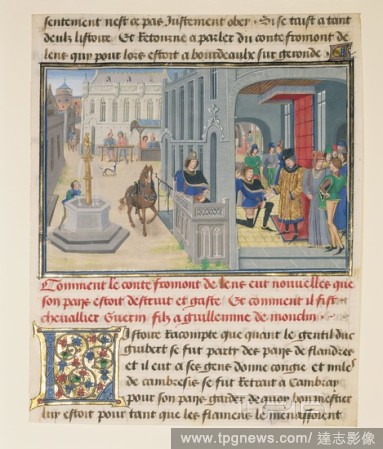 sentement nest ce pas Justement obey. Si se taist a tant
deulz listoire. Et Retourne a parler du conte fromont de
lens quy pour lors estoit a bourdeaulx sur gironde.
Comment le conte fromont de lens eut nouuelles que
son pays estoit destruit et gaste. Et comment il fist
cheuallier Guerin filz a guillemme de monclin.
Listoire racompte que quant le gentil duc
guibert se fut party des pays de flandres
et il eut a ses gens donne congie et mile
de cambresis se fut Retrait a Cambray
pour son pays garder de quoy bon mestier
luy estoit pour tant que les flamens le menassoient
www.tpgnews.com/達志影像